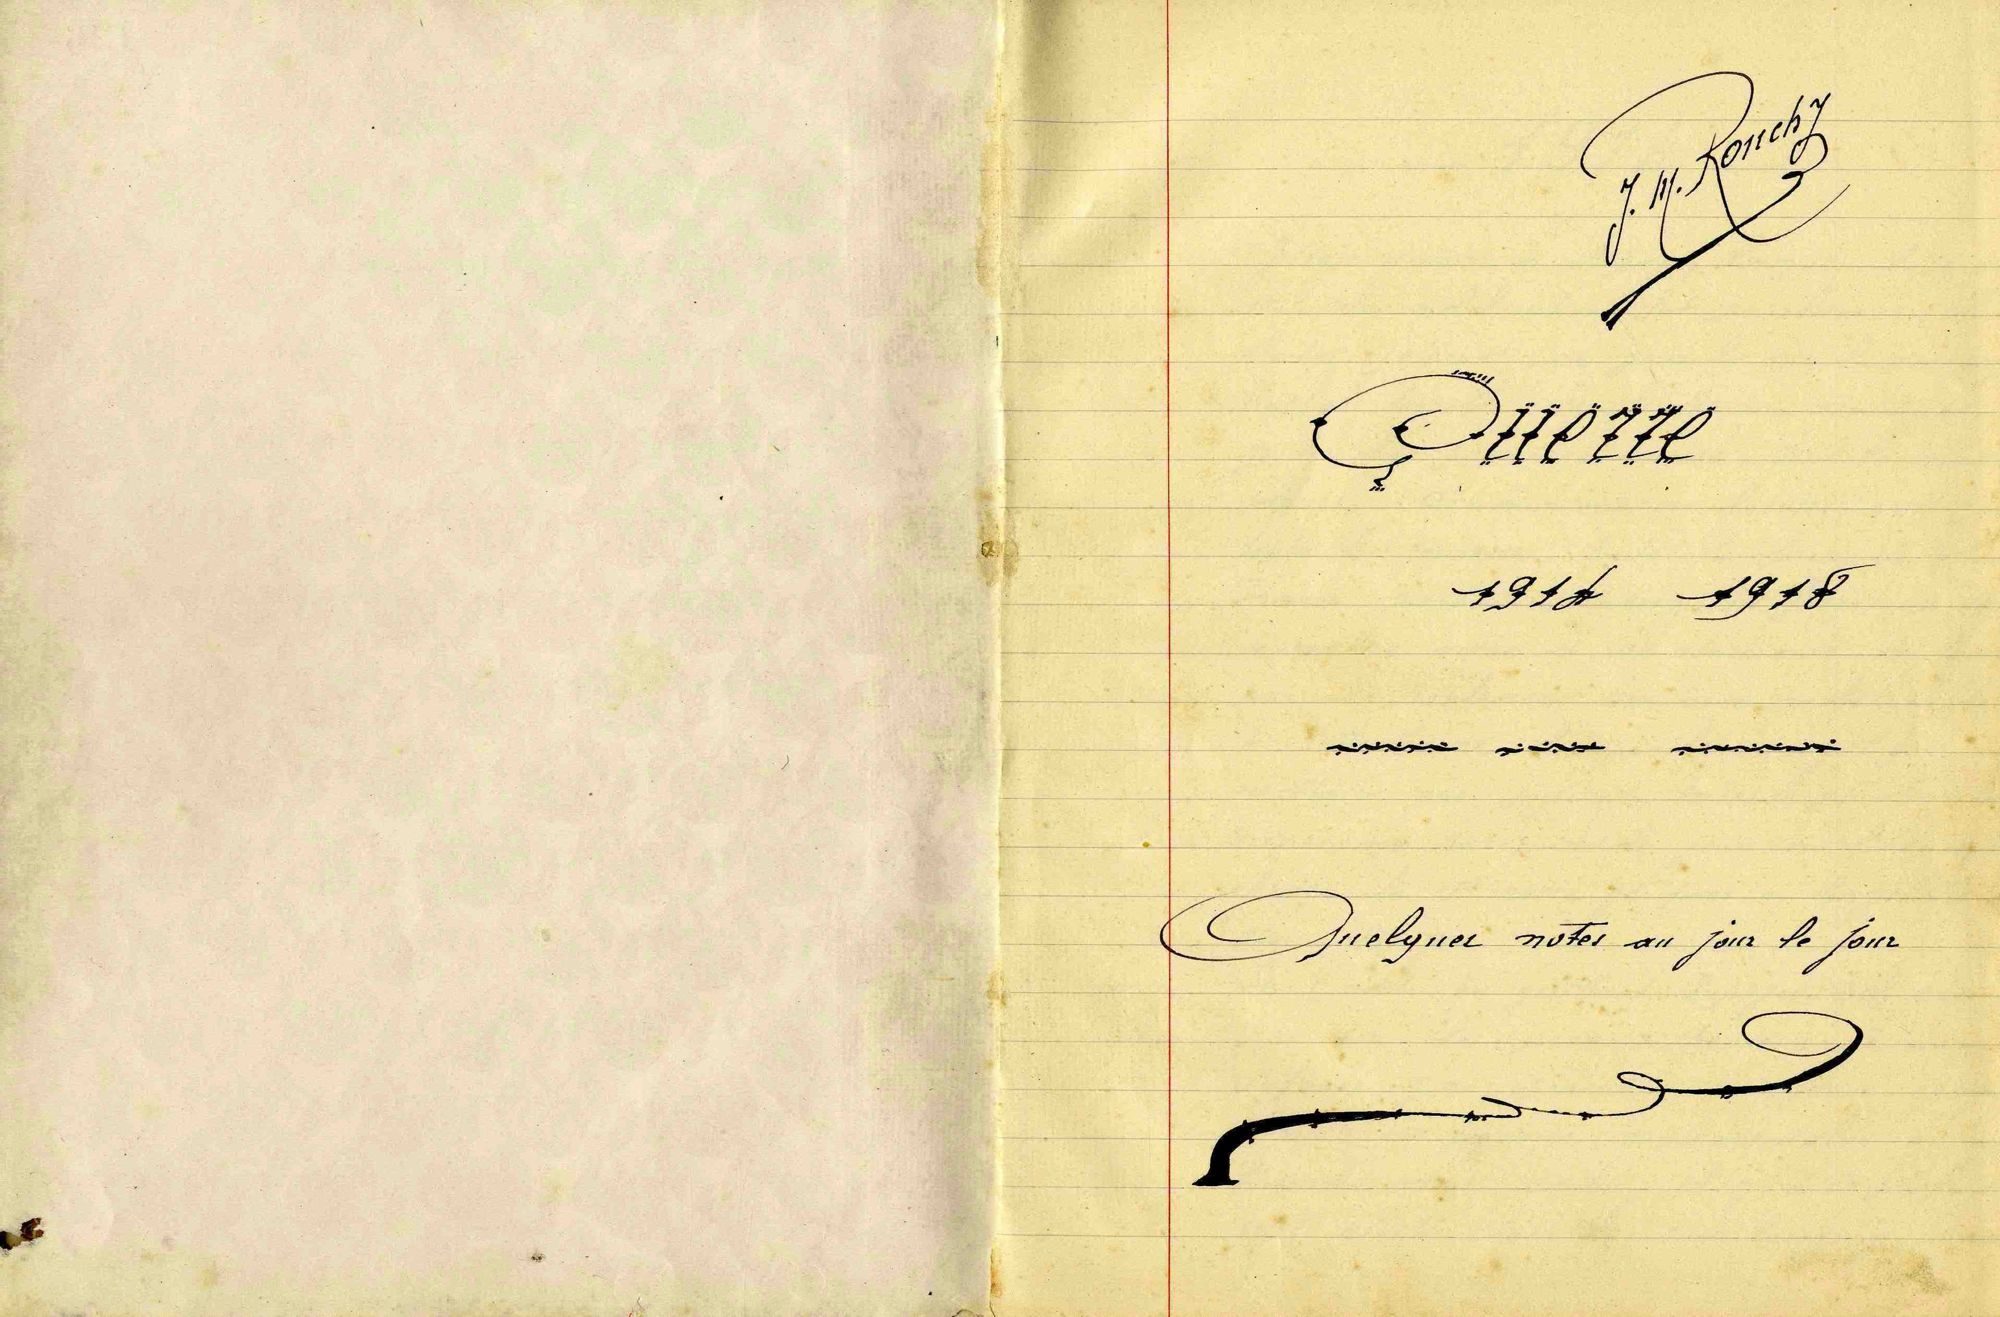 J. M. Ronchy
Guerre
1914 1918
Quelques notes au jour le jour